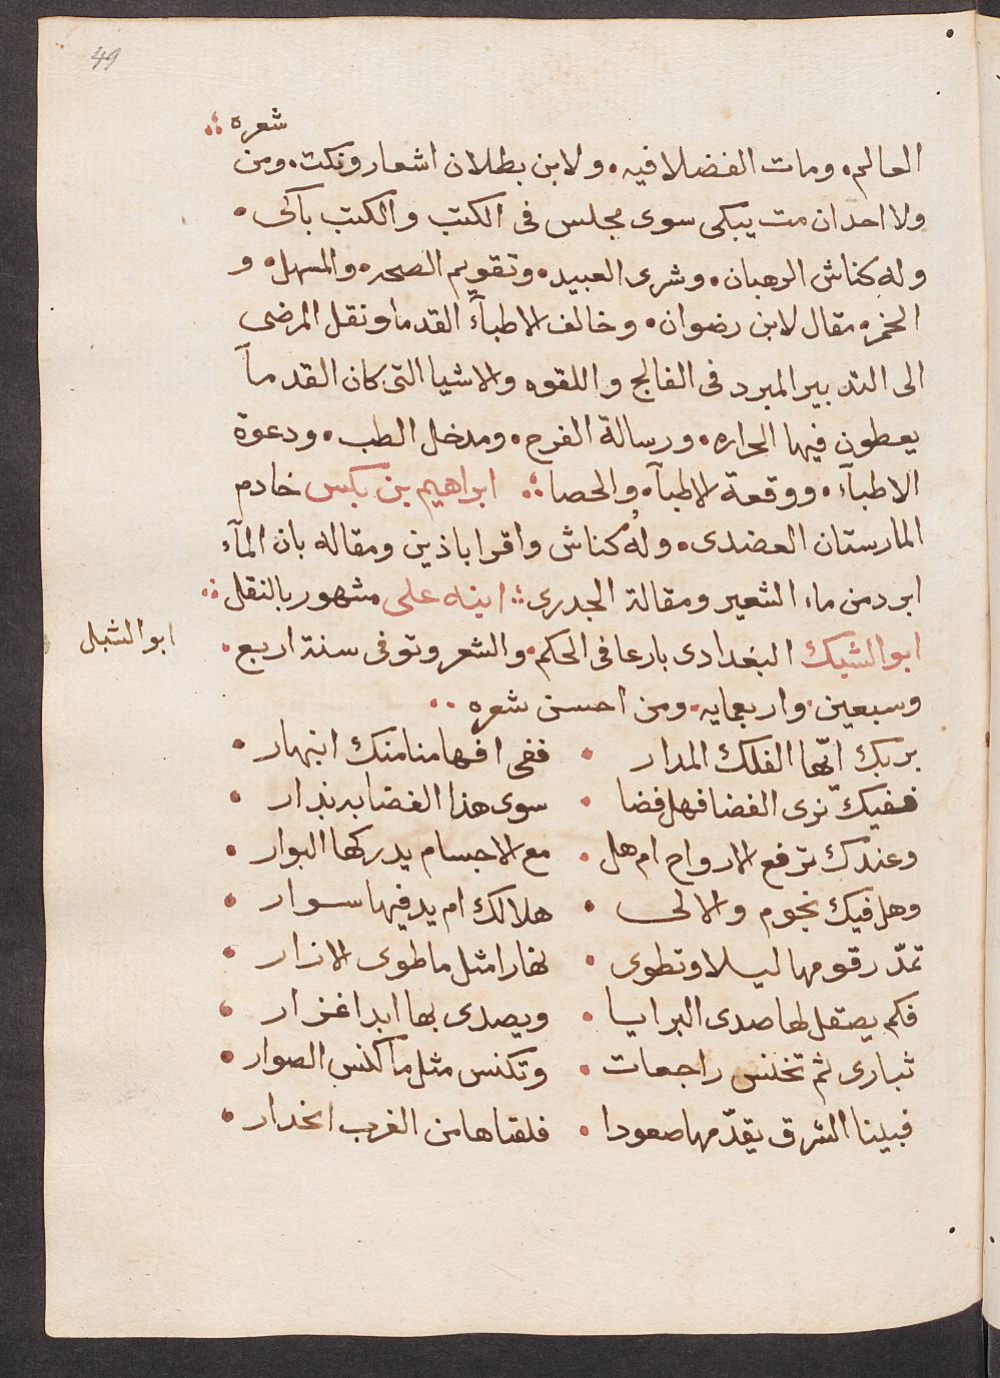 49
شعره
العالم، ومات الفضلا فيه، ولابن بطلان اشعار ونكت، ومن
ولا احد ان مت يبكى سوى مجلس فى الكتب والكتب باكى
وله كناش الرهبان، وشرى العبيد، وتقويم الصحه، والمسهل، و
الخمر، مقال لابن رضوان، وخالف الاطبآء القدما ونقل المرضى
الى التدبير المبرد فى الفالج واللقوه والاشيا التى كان القدمآ
يعطون فيها الحراره، ورسالة الفرح، ومدخل الطب، ودعوة
الاطبآء، ووقعة الاطبآ، والحصا ابراهيم بن بكس خادم
المارستان العضدى، وله كناش واقراباذين ومقاله بان المآء
ابرد من ماء الشعير ومقالة الجدرى ابنه على مشهور بالنقل
ابو الشبك البغدادى بارعا فى الحكم، والشعر وتوفى سنة اربع
ابو الشبل
وسبعين واربعمايه، ومن احسن شعره
بربك ايها الفلك المدار ففى افهامنا منك انبهار
ففيك نرى الفضا فهل فضا سوى هذا الفضا به ندار
وعندك ترفع الارواح ام هل مع الاجسام يدركها البوار
وهل فيك نجوم والالى هلالك ام يد فيها سوار
تمدّ رقومها ليلا وتطوى نهارا مثل ما طوى الازار
فكم يصقل لها صدى البرايا ويصدى بها ابدا غزار
تبارى ثم تخنس راجعات وتكنس مثل ما كنس الصوار
فبينا الشرق يقدّمها صعودا فلقناها من الغرب انحدار